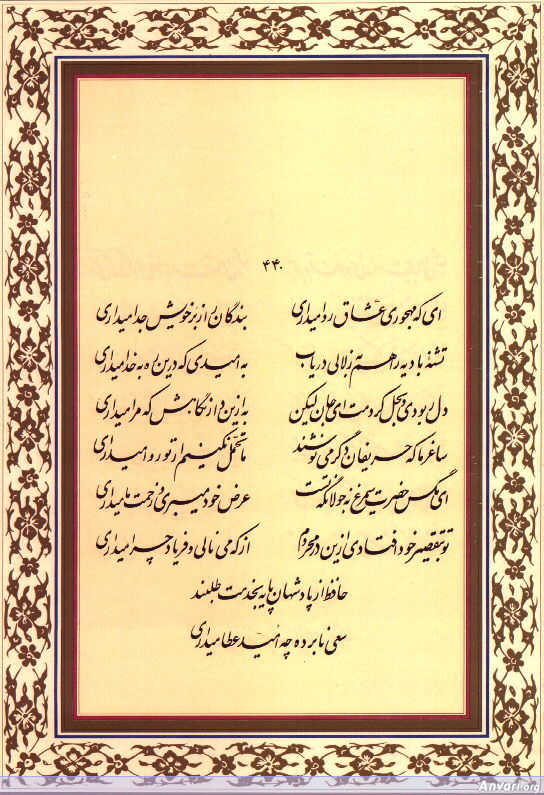 ۴۴۰
ای که مهجوری عشاق روا میداری بندگان را ز بر خویش جدا میداری
تشنهٔ بادیه را هم به زلالی دریاب به امیدی که درین ره به خدا میداری
دل ربودی و بحل کردمت ای جان لیکن به ازین دار نگاهش که مرا میداری
ساغر ما که حریفان دگر می نوشند ما تحمل نکنیم ار تو روا میداری
ای مگس حضرت سیمرغ نه جولانگه تست عرض خود میبری و زحمت ما میداری
تو بتقصیر خود افتادی ازین در محروم از که می نالی و فریاد چرا میداری
حافظ از پادشهان پایه بخدمت طلبند
سعی نابرده چه امید عطا میداری
Anvari.org